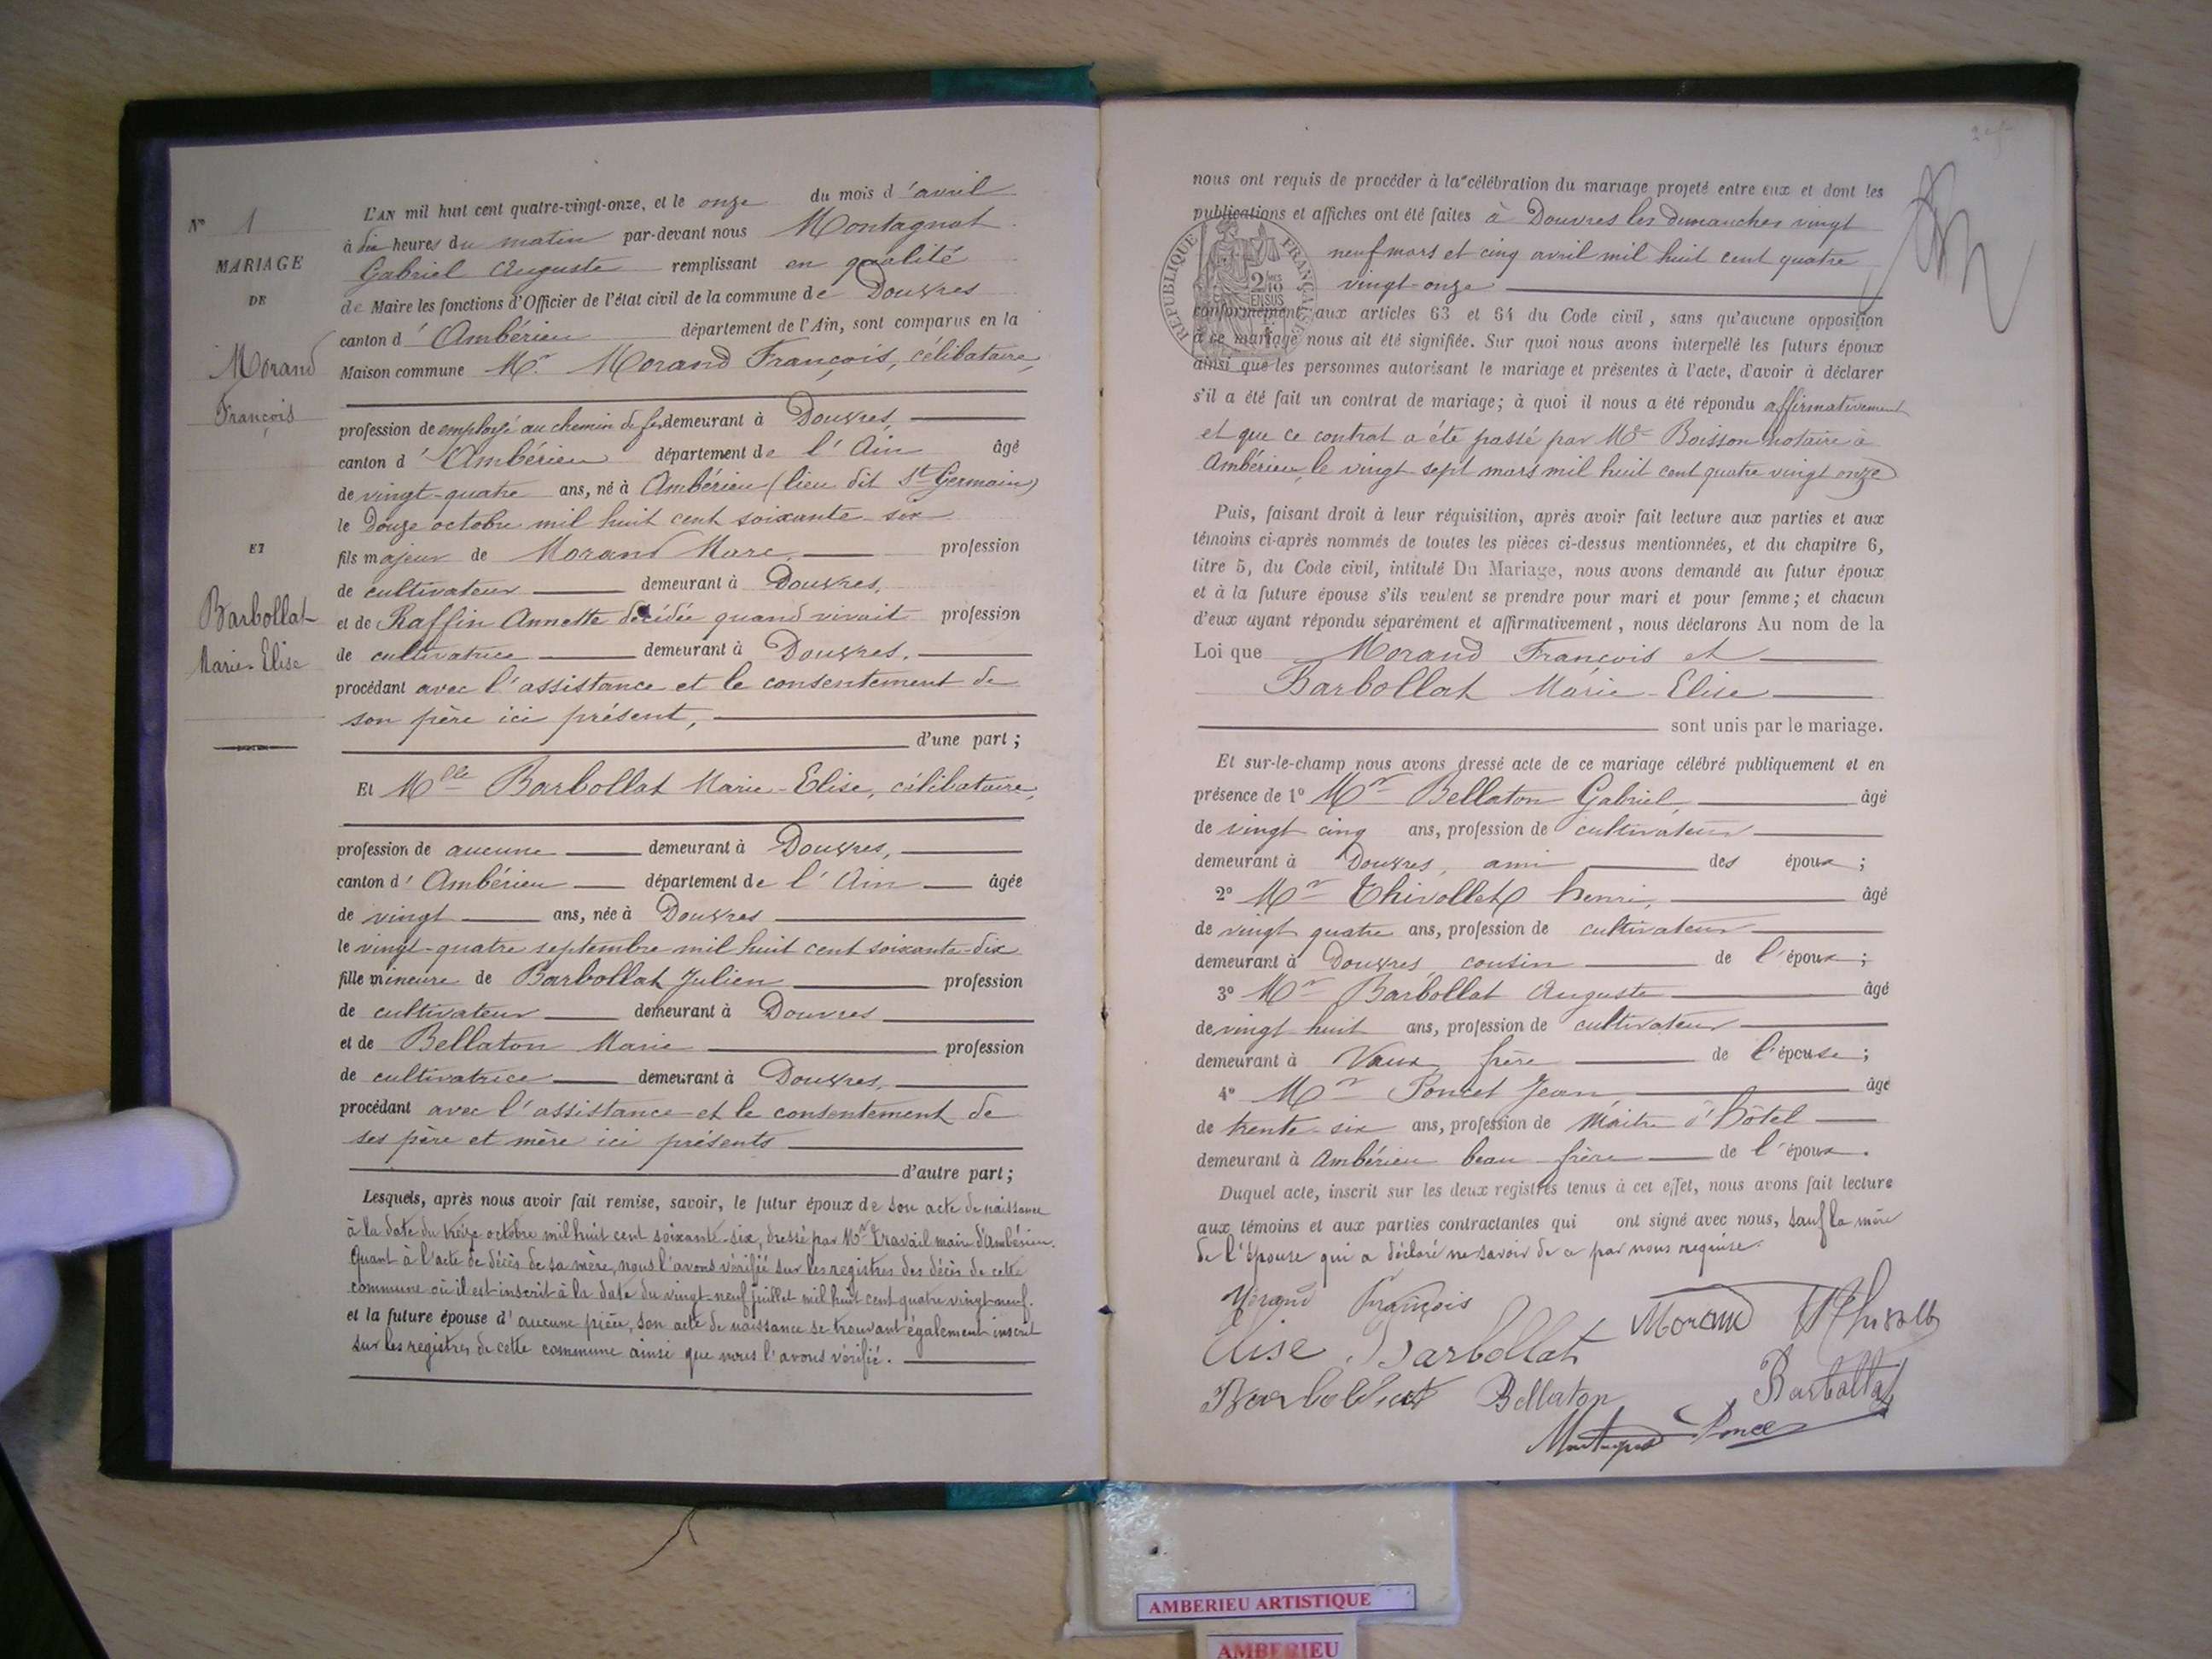 N° 1
MARIAGE
DE
Morand
François
ET
Barbollat
Marie-Elise
L'AN mil huit cent quatre-vingt-onze, et le onze du mois d'avril
à dix heures du matin par-devant nous Montagnat
Gabriel Auguste remplissant en qualité
de Maire les fonctions d'Officier de l'état civil de la commune de Douvres
canton d'Ambérieu département de l'Ain, sont comparus en la
Maison commune Mr. Morand François, célibataire,
profession de employé au chemin de fer demeurant à Douvres,
canton d'Ambérieu département de l'Ain âgé
de vingt-quatre ans, né à Ambérieu (lieu dit St Germain)
le Douze octobre mil huit cent soixante-six
fils majeur de Morand Marc, profession
de cultivateur demeurant à Douvres,
et de Raffin Annette décidée quand vivait profession
de cultivatrice demeurant à Douvres,
procédant avec l'assistance et le consentement de
son père ici présent,
d'une part ;
Et Mlle Barbollat Marie-Elise, célibataire,
profession de aucune demeurant à Douvres,
canton d'Ambérieu département de l'Ain âgée
de vingt ans, née à Douvres
le vingt-quatre septembre mil huit cent soixante-dix
fille mineure de Barbollat Julien profession
de cultivateur demeurant à Douvres
et de Bellaton Marie profession
de cultivatrice demeurant à Douvres,
procédant avec l'assistance et le consentement de
ses père et mère ici présents
d'autre part ;
Lesquels, après nous avoir fait remise, savoir, le futur époux de son acte de naissance
à la date du treize octobre mil huit cent soixante-six, dressé par Mr Travail maire d'Ambérieu.
Quant à l'acte de décès de sa mère, nous l'avons vérifié sur les registres des décès de cette
commune où il est inscrit à la date du vingt-neuf juillet mil huit cent quatre vingt-neuf.
et la future épouse d'aucune pièce, son acte de naissance se trouvant également inscrit
sur les registres de cette commune ainsi que nous l'avons vérifié.
nous ont requis de procéder à la célébration du mariage projeté entre eux et dont les
publications et affiches ont été faites à Douvres les dimanches vingt
neuf mars et cinq avril mil huit cent quatre
vingt-onze
RÉPUBLIQUE FRANÇAISE
conformément aux articles 63 et 64 du Code civil, sans qu'aucune opposition
à ce mariage nous ait été signifiée. Sur quoi nous avons interpellé les futurs époux
ainsi que les personnes autorisant le mariage et présentes à l'acte, d'avoir à déclarer
s'il a été fait un contrat de mariage; à quoi il nous a été répondu affirmativement
et que ce contrat a été passé par Me Boisson notaire à
Ambérieu, le vingt-sept mars mil huit cent quatre vingt onze
Puis, faisant droit à leur réquisition, après avoir fait lecture aux parties et aux
témoins ci-après nommés de toutes les pièces ci-dessus mentionnées, et du chapitre 6,
titre 5, du Code civil, intitulé Du Mariage, nous avons demandé au futur époux
et à la future épouse s'ils veulent se prendre pour mari et pour femme; et chacun
d'eux ayant répondu séparément et affirmativement, nous déclarons Au nom de la
Loi que Morand François et
Barbollat Marie-Elise
sont unis par le mariage.
Et sur-le-champ nous avons dressé acte de ce mariage célébré publiquement et en
présence de 1° Mr Bellaton Gabriel, âgé
de vingt cinq ans, profession de cultivateur
demeurant à Douvres, ami des époux ;
2° Mr Thivollet henri, âgé
de vingt quatre ans, profession de cultivateur
demeurant à Douvres, cousin de l'époux ;
3° Mr Barbollat Auguste âgé
de vingt huit ans, profession de cultivateur
demeurant à Vaux, frère de l'épouse ;
4° Mr Poncet Jean, âgé
de trente-six ans, profession de Maitre d'hôtel
demeurant à Ambérieu beau-frère de l'époux.
Duquel acte, inscrit sur les deux registres tenus à cet effet, nous avons fait lecture
aux témoins et aux parties contractantes qui ont signé avec nous, sauf la mère
de l'épouse qui a déclaré ne savoir de ce par nous requise.
Morand François
Morand
Elise Barbollat
Barbollat Bellaton Barbollat
Montagnat Poncet
AMBERIEU ARTISTIQUE
AMBERIEU